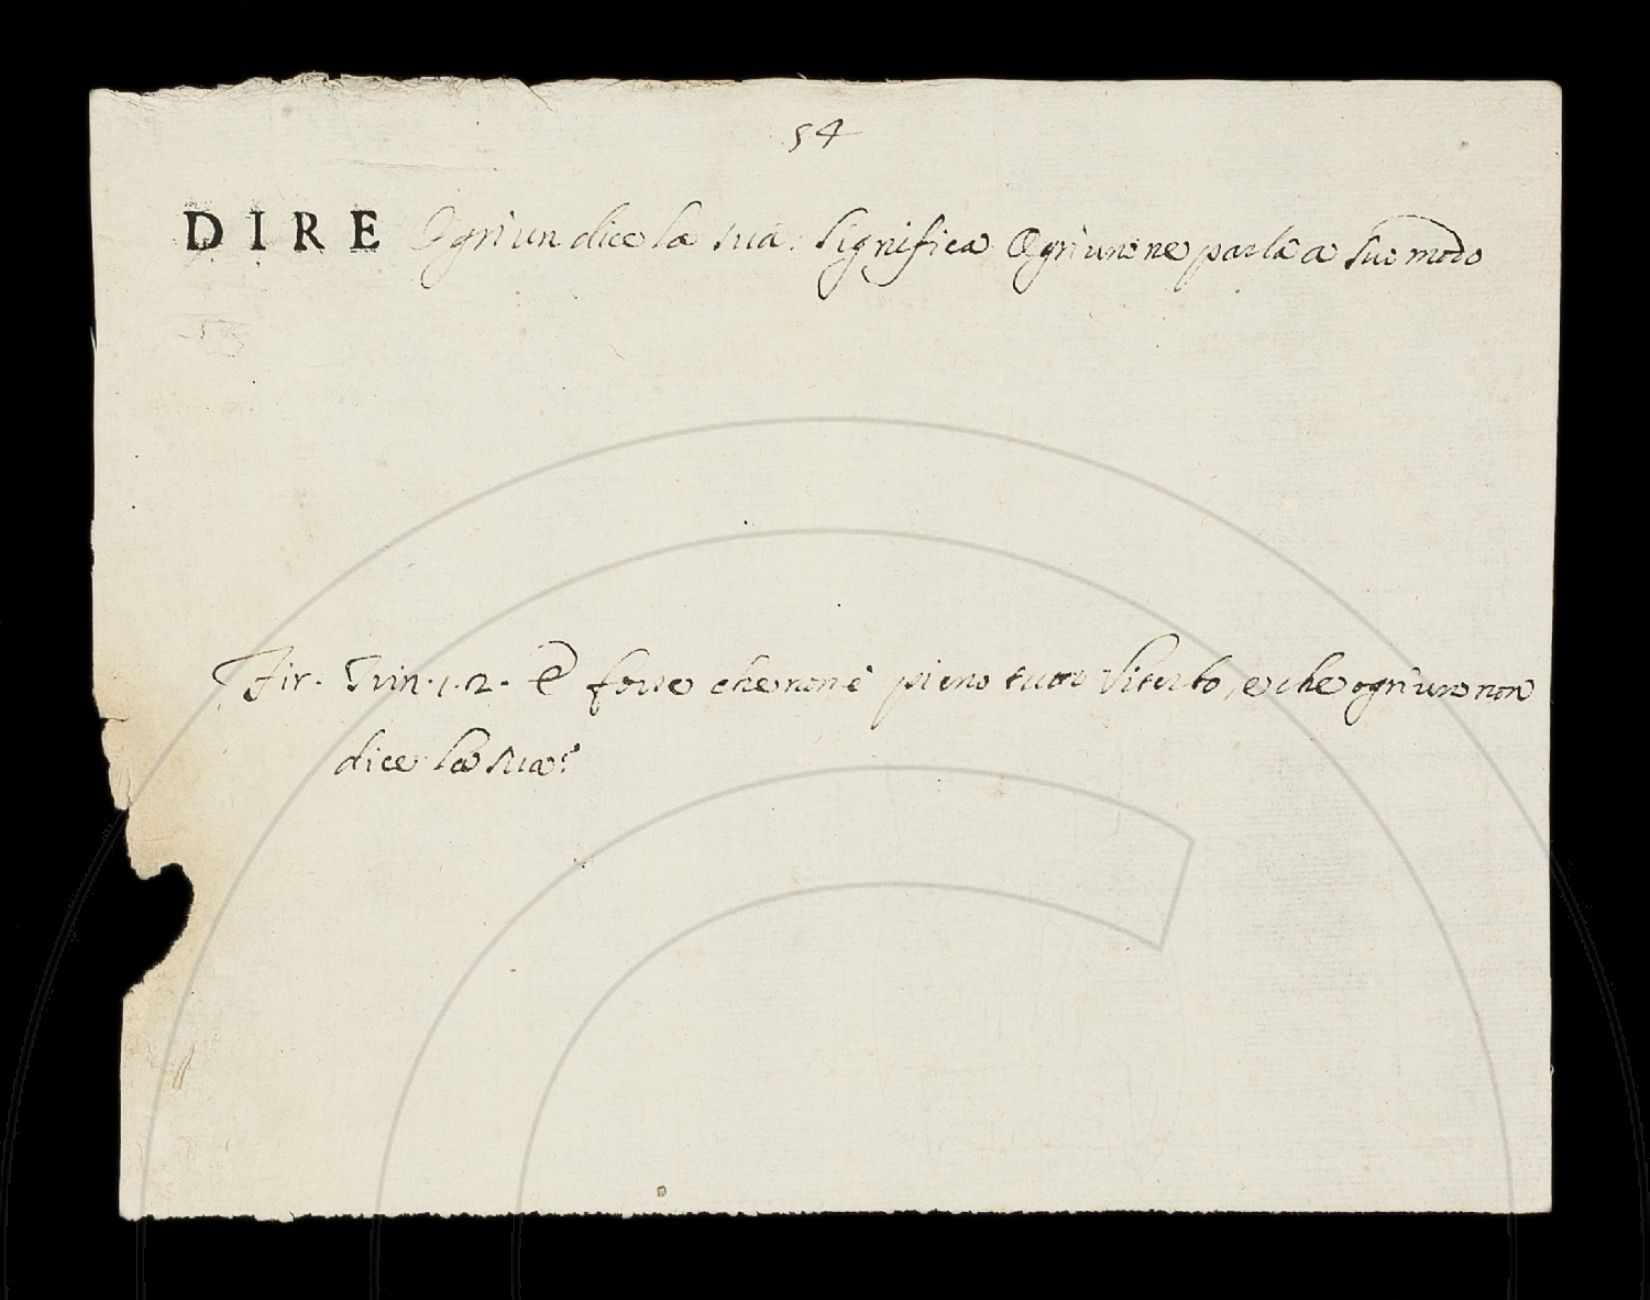 54
DIRE Ogni un dice la sua. Significa Ogni uno ne parla a suo modo
Fir. Trin. 1. 2. E forse che non è pieno tutto Viterbo, e che ogni uno non
dice la sua?